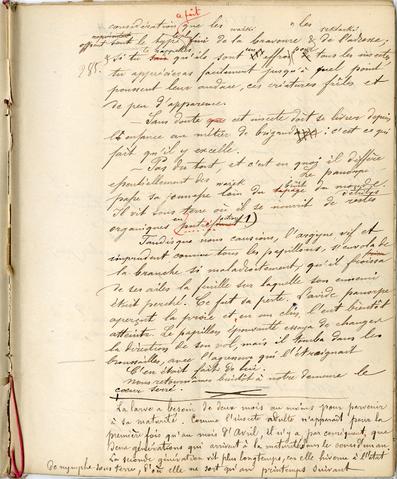 a fait
considération que les les
offrent tout le type fini de la bravoure & de l'adresse.
& si tu te rappelles qu'ils sont l'effroi pour tous les insectes,
255. tu apprécieras facilement jusqu'à quel point
poussent leur audace, ces créatures frêles et
de peu d'apparence.
— Sans doute cet insecte doit se livrer depuis
l'enfance au métier de brigand : c'est ce qui
fait qu'il y excelle.
— Pas du tout, et c'est en quoi il diffère
essentiellement des Le panorpe
passe sa jeunesse loin du bruit du monde.
Il vit sous terre où il se nourrit de restes
organiques 1)
Tandis que nous causions, l'argyne vif et
imprudent comme tous les papillons, s'envola de
la branche si maladroitement, qu'il froissa
de ses ailes la feuille sur laquelle son ennemi
était perché. Ce fut sa perte. L'avide panorpe
aperçut la proie et, en un clin, l'eut bientôt
atteinte. Le papillon épouvanté essaya de changer
la direction de son vol, mais il tomba dans les
broussailles, avec l'agresseur qui l'étreignait
C'en était fait de lui.
Nous retournâmes bientôt à notre demeure le
cœur serré.
La larve a besoin de deux mois au moins pour parvenir
à sa maturité. Comme l'insecte adulte n'apparaît pour la
première fois qu'au mois d'Avril, il n'y a, par conséquent, que
deux générations qui arrivent à maturité dans le cours d'un an.
La seconde génération vit plus longtemps, car elle hiverne à l'état
de nymphe sous terre, d'où elle ne sort qu'au printemps suivant